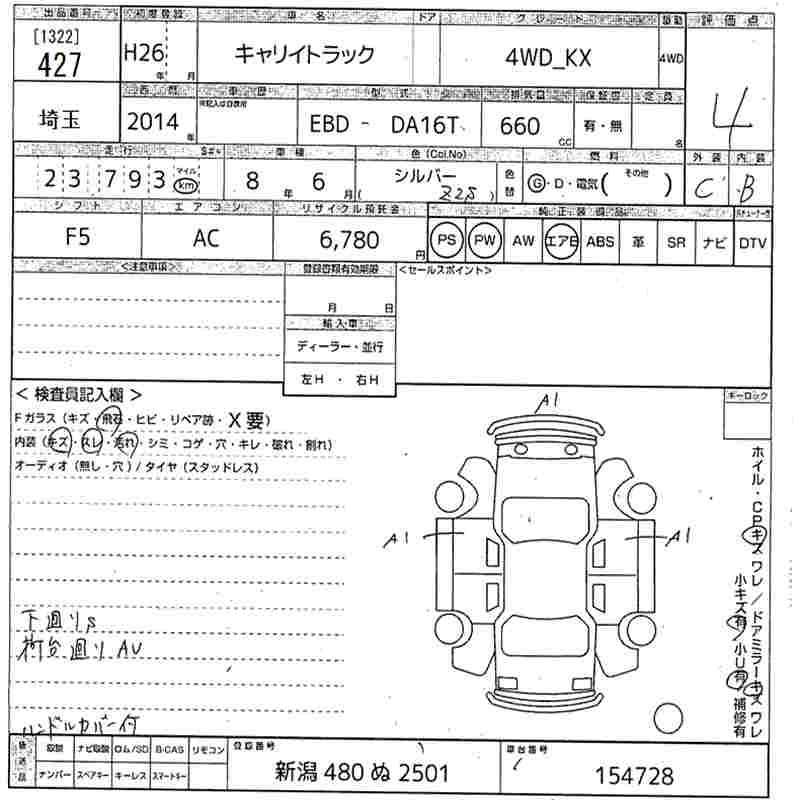 出品番号 初度登録 車名 ドア グレード 駆動 評価点
[1322]
427 H26 年 月 キャリイトラック 4WD_KX 4WD 4
西暦 車歴 型式 排気量 保証書 定員
埼玉 2014 年 未記入は自家用 EBD - DA16T 660 CC 有・無 名
走行 車検 色(Col.No) 燃料 外装 内装
23793 マイル km 8年 6月 シルバー (Z2S) 色替 G・D・電気( その他 ) C B
シフト エアコン リサイクル預託金 純正装備品
F5 AC 6,780 円 PS PW AW エアB ABS 革 SR ナビ DTV
<注意事項> 登録書類有効期限 <セールスポイント>
月 日
輸入車
ディーラー・並行
左H ・ 右H
< 検査員記入欄 > キーロック
Fガラス (キズ・飛石・ヒビ・リペア跡・X要)
内装 (キズ・スレ・汚れ・シミ・コゲ・穴・キレ・破れ・割れ)
オーディオ (無し・穴) / タイヤ (スタッドレス)
A1
A1 A1
ホイル・CPキズ ワレ / ドアミラーキズ ワレ
小キズ有 / 小U有・補修有
下廻りS
荷台廻りAU
ハンドルカバー付
後送品 取説 ナビ取説 ロム/SD B-CAS リモコン 登録番号 車台番号
ナンバー スペアキー キーレス スマートキー 新潟 480 ぬ 2501 154728